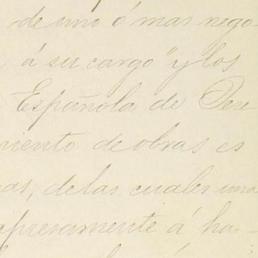 de uno ó mas nego
á su cargo" y los
Española de Dere
miento de obras es
as, de las cuales una
apresamente á ha-